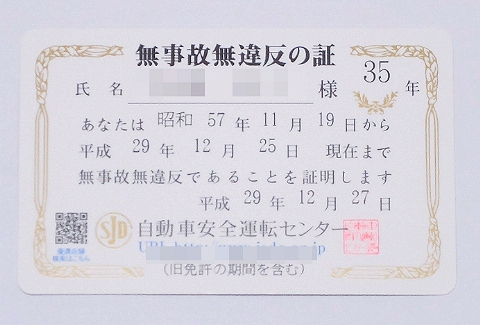 無事故無違反の証
氏 名 様 35 年
あなたは 昭和 57 年 11 月 19 日から
平成 29 年 12 月 25 日 現在まで
無事故無違反であることを証明します
平成 29 年 12 月 27 日
SJD 自動車安全運転センター
優遇店舗
検索はこちら
(旧免許の期間を含む)